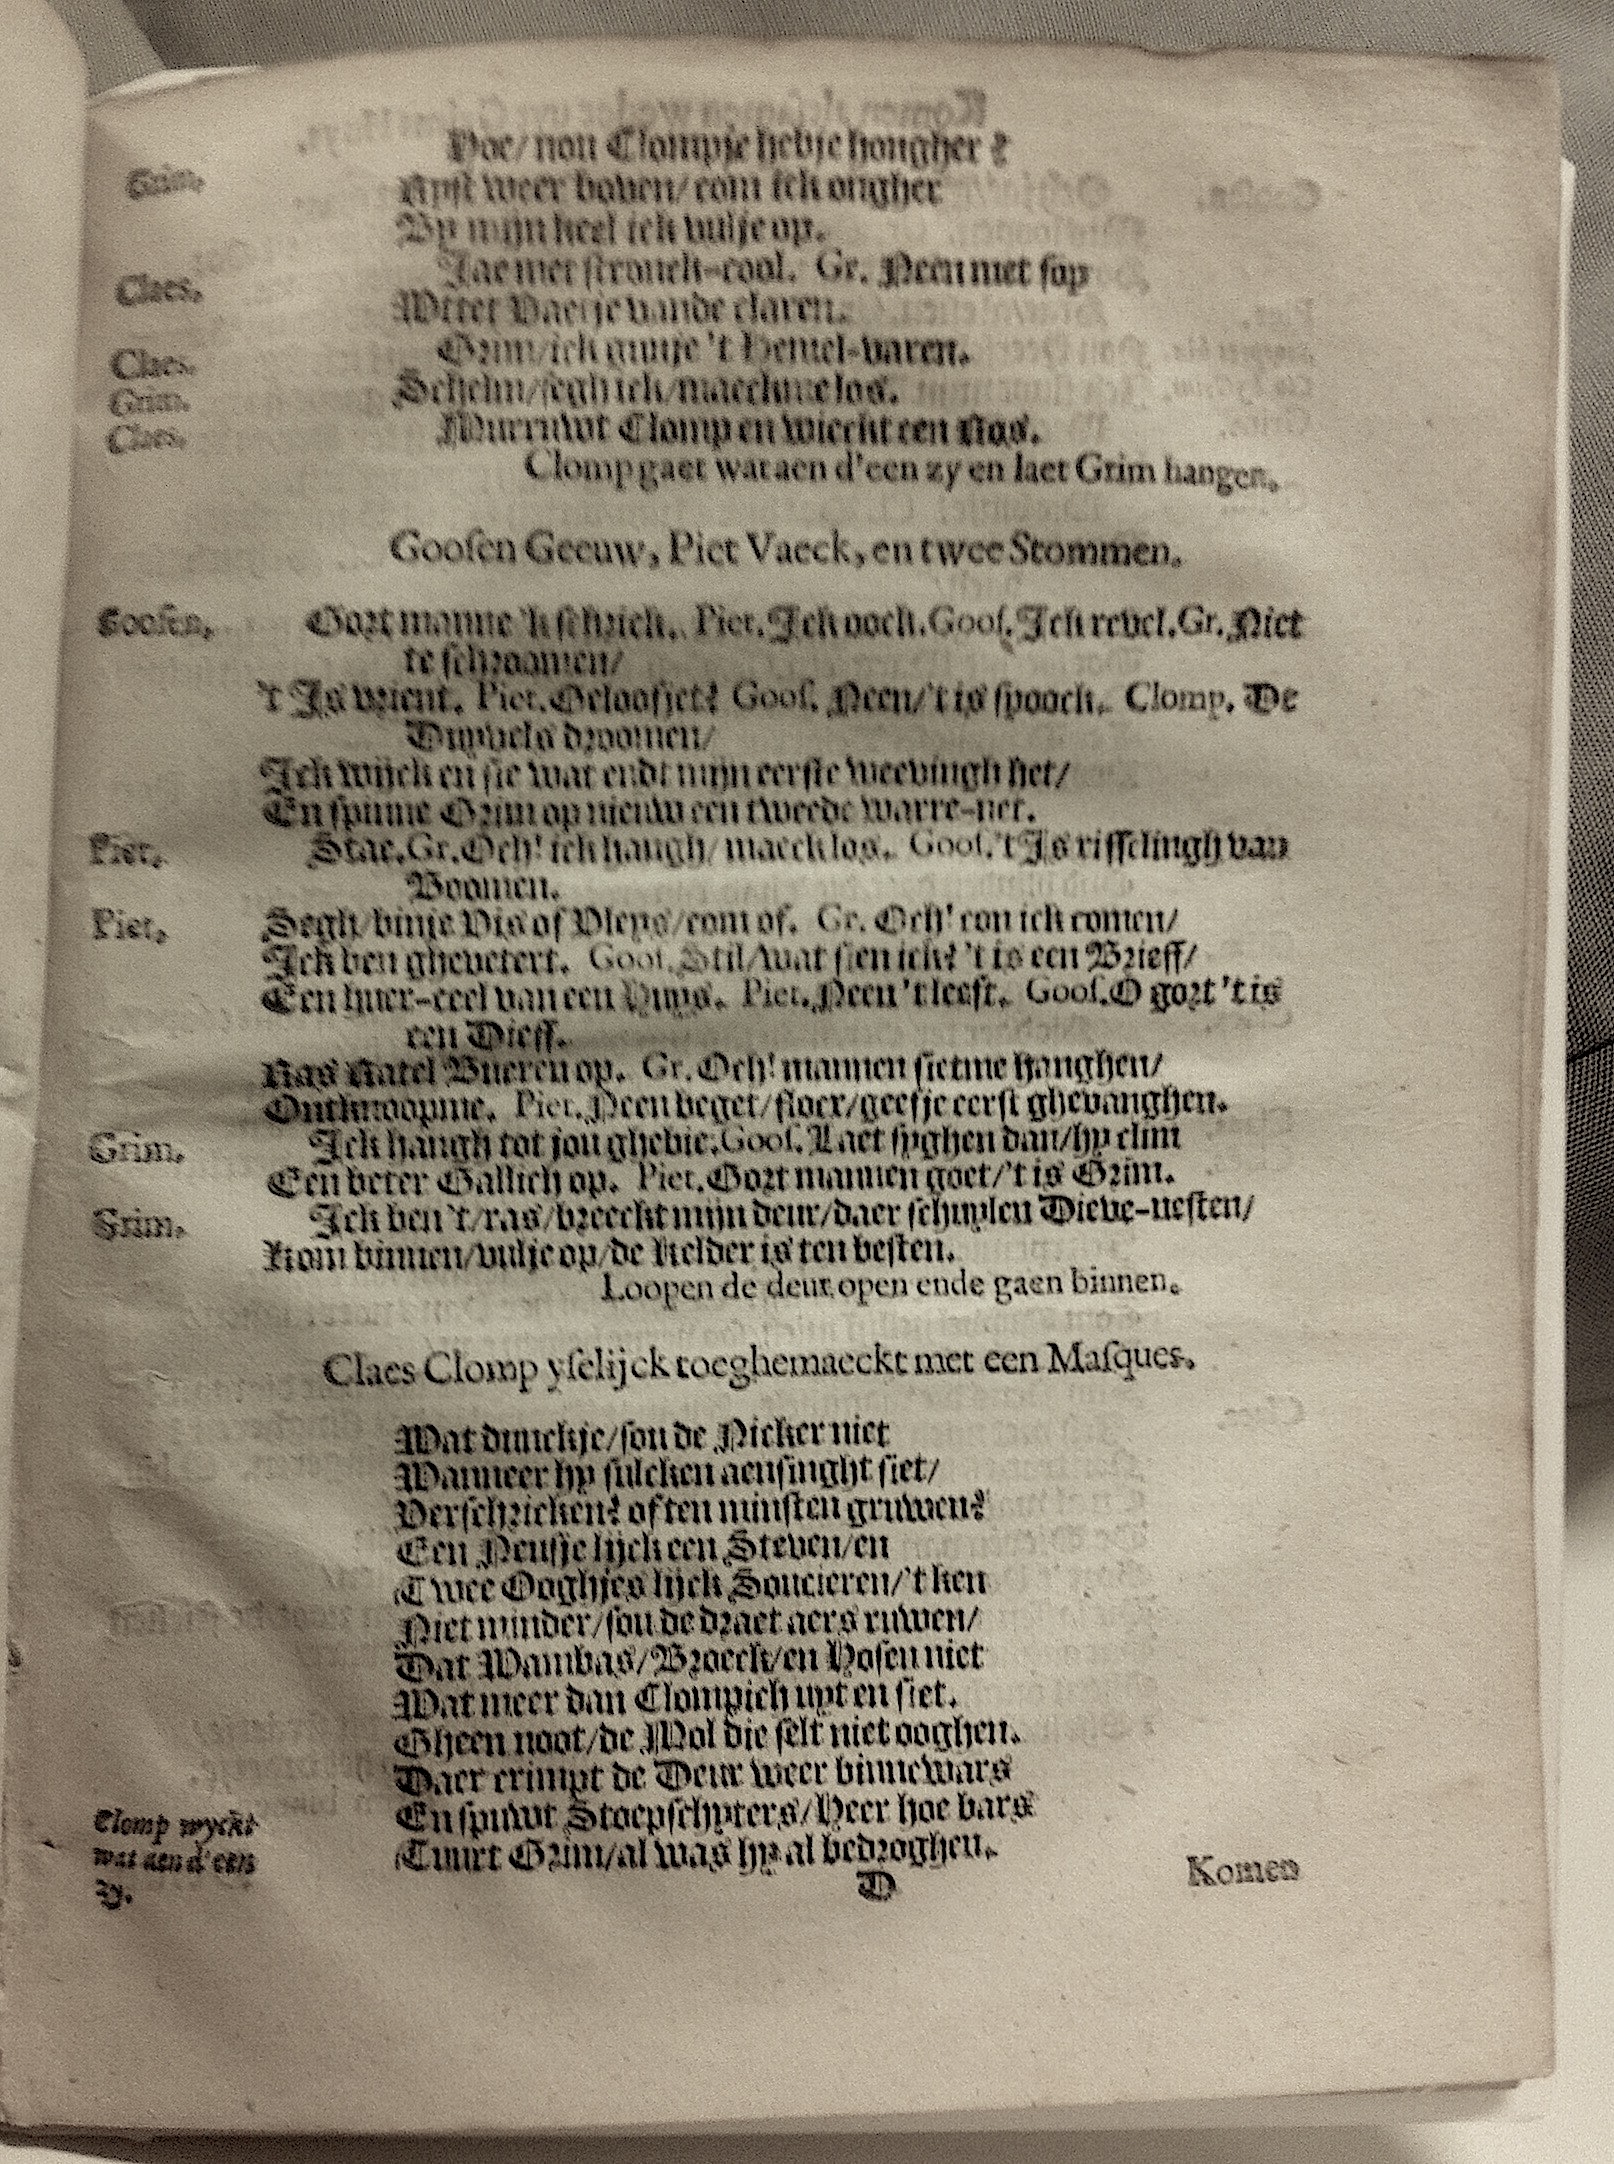 Hoe/ nou Clompje hebje hongher?
Grim. Hyst weer boven/ com ick ongher
By mijn keel ick vulje op.
Claes. Jae met stronck-cool. Gr. Neen met sop
Uyttet Vaetje vande claren.
Claes. Grim/ ick gunje 't Hemel-varen.
Grim. Schelm/ segh ick/ maeckme los.
Claes. Clomp en wieckt een Ros.
Clomp gaet wat aen d'een zy en laet Grim hangen.
Goosen Geeuw, Piet Vaeck, en twee Stommen.
Goosen. Gort manne 'k schrick. Piet. Ick oock. Goos. Ick revel. Gr. Niet
te schroomen/
't Is vrient. Piet. Geloofjet? Goos. Neen/ 't is spoock. Clomp. De
Duyvels droomen/
Ick wijck en sie wat endt mijn eerste weevingh het/
En spinne Grim op nieuw een tweede warre-net.
Piet. Stae. Gr. Och! ick hangh/ maeck los. Goos. 't Is risselingh van
Boomen.
Piet. Segh/ binje Vis of Vleys/ com of. Gr. Och! con ick comen/
Ick ben ghevetert. Goos. Stil/ wat sien ick? 't is een Brieff/
Een huer-ceel van een Huys. Piet. Neen 't leeft. Goos. O gort 't is
een Dieff.
Ras Ratel Bueren op. Gr. Och! mannen sietme hanghen/
Ontknoopme. Piet. Neen beget/ floer/ geefje eerst ghevanghen.
Grim. Ick hangh tot jou ghebie. Goos. Laet syghen dan/ hy clim
Een beter Gallich op. Piet. Gort mannen goet/ 't is Grim.
Grim. Ick ben 't/ ras/ breeckt mijn deur/ daer schuylen Dieve-nesten/
Kom binnen/ vulje op/ de Kelder is ten besten.
Loopen de deur open ende gaen binnen.
Claes Clomp yselijck toeghemaeckt met een Masques.
Wat dunckje/ sou de Nicker niet
Wanneer hy sulcken aensinght siet/
Verschricken? of ten minsten gruwen?
Een Neusje lijck een Steven/ en
Twee Ooghjes lijck Soucieren/ 't ken
Niet minder/ sou de draet aers ruwen/
Dat Wambas/ Broeck/ en Hosen niet
Wat meer dan Clompich uyt en siet.
Gheen noot/ de Mol die selt niet ooghen.
Daer crimpt de Deur weer binnewars
En spuwt Stoepschyters/ Heer hoe bars
Tuurt Grim/ al was hy al bedroghen.
Clomp wyckt
wat aen d'een
zy.
D
Komen